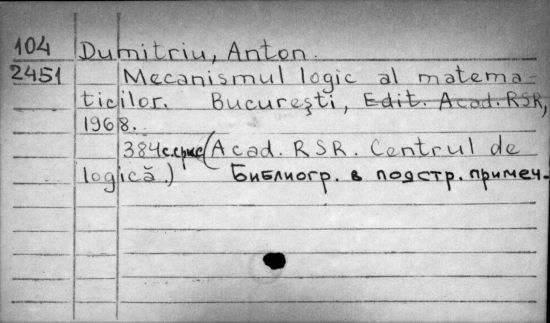 104 Dumitriu, Anton.
2451 Mecanismul logic al matema-
ticilor. Bucureşti, Edit. Acad. RSR,
1968.
384с. с рис (Acad. RSR. Centrul de
logică.) Библиогр. в подстр. примеч.